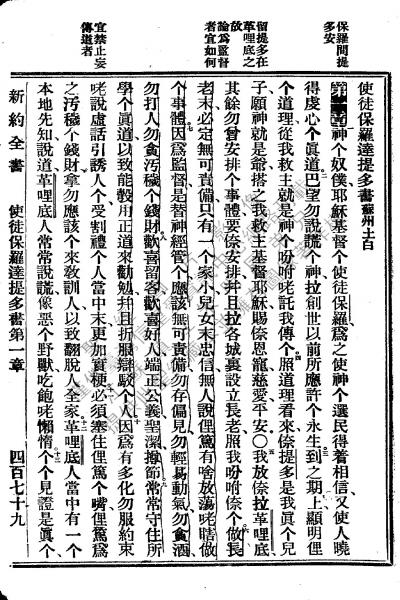 保羅問提
多安
留提多在
革哩底之
故
論爲監督
者宜如何
宜禁止妄
傳道者
使徒保羅達提多書 蘇州土白
神个奴僕耶穌基督个使徒保羅爲之使神个選民得着相信又使人曉
得虔心个眞道巴望勿說謊个神拉創世以前所應許个永生到之期上顯明俚
个道理從我救主就是神个吩咐咾託我傳个照道理看來倷提多是我眞个兒
子願神就是爺搭之我救主基督耶穌賜倷恩寵慈愛平安〇我放倷拉革哩底
其餘勿曾安排个事體要倷安排幷且拉各城裏設立長老照我吩咐倷个做長
老末必定無可責備只有一个家小兒女末忠信無人說俚篤有啥放蕩咾瞎做
个事體因爲監督是替神經管个應該無可責備勿存偏見勿輕易動氣勿貪酒
勿打人勿貪汚穢个錢財歡喜留客歡喜好人端正公義聖潔撙節常常守住所
學个眞道以致能彀用正道來勸勉幷且折服辯駁个人因爲有多化勿服約束
咾說虛話引誘人个受割禮个人當中末更加實梗必須塞住俚篤个嘴俚篤爲
之汚穢个錢財拿勿應該个來敎訓人以致翻脫人全家革哩底人當中有一个
本地先知說道革哩底人常常說謊像惡个野獸吃飽咾懶惰个个見證是眞个
新約全書 使徒保羅達提多書第一章 四百七十九